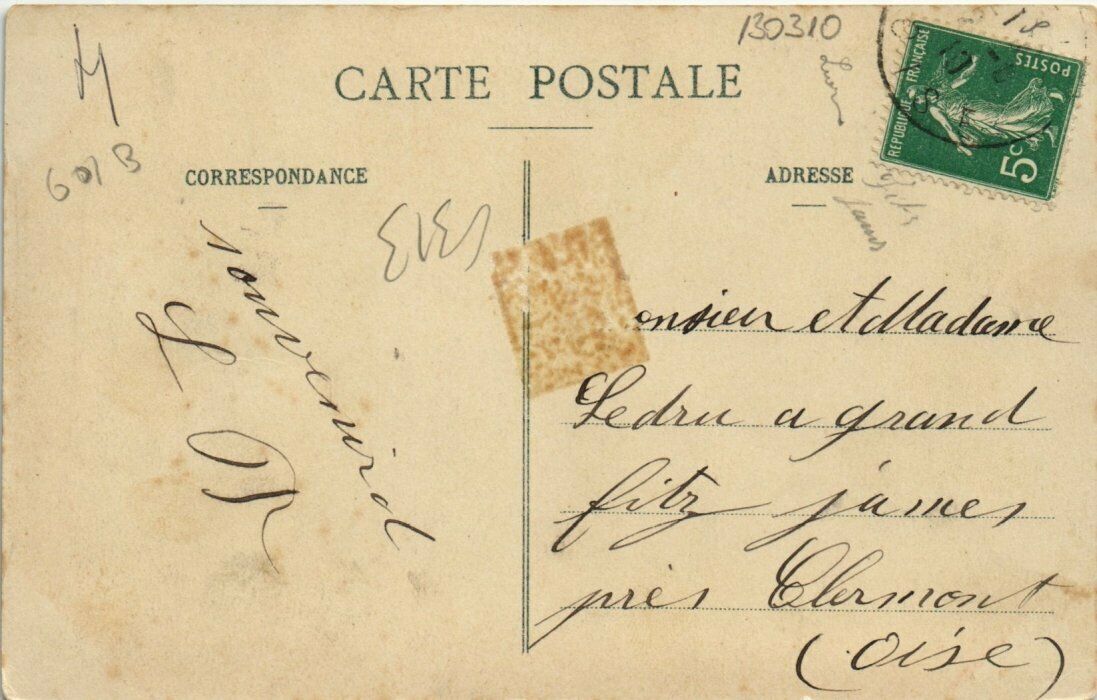 130310
CARTE POSTALE
601 B
CORRESPONDANCE
ADRESSE
REPUBLIQUE FRANCAISE
POSTES
5c
souvenird
L D
onsieur et Madame
Ledru a grand
fitz james
près Clermont
(oise)